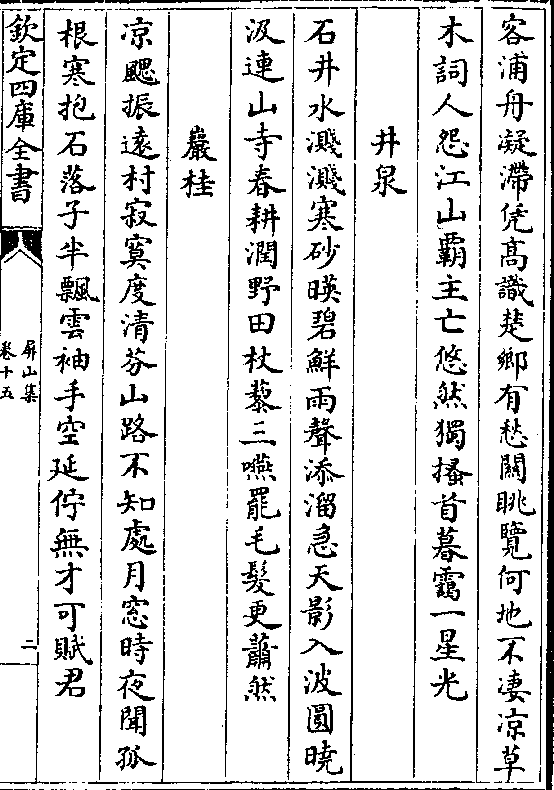 客浦舟凝滯凭髙識楚郷有愁闗眺覽何地不凄凉草
木詞人怨江山霸主亡悠然獨搔首暮靄一星光
井泉
石井水濺濺寒砂暎碧鮮雨聲添溜急天影入波圓曉
汲連山寺春耕潤野田杖藜三嚥罷毛髮更蕭然
巖桂
凉飈振逺村寂寞度清芬山路不知處月窓時夜聞孤
根寒抱石落子半飄雲袖手空延佇無才可賦君
欽定四庫全書
屏山集
卷十五
二